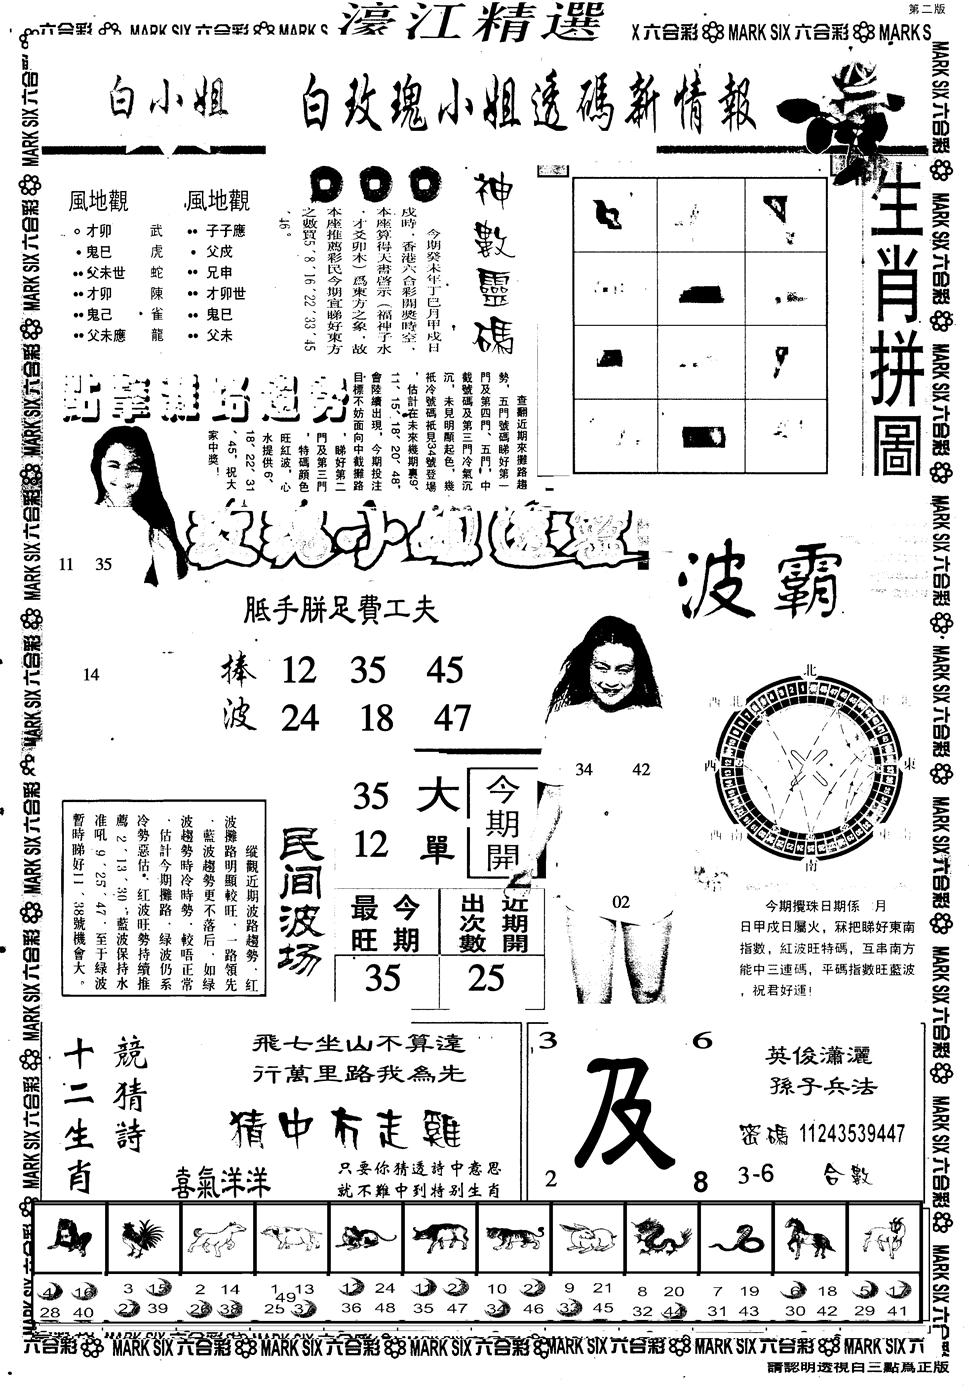 第二版
濠江精選
六合彩 MARK SIX 六合彩 MARK S
X 六合彩 MARK SIX 六合彩 MARK S
白小姐
白玫瑰小姐透碼新情報
風地觀
才卯 武
鬼巳 虎
父未世 蛇
才卯 陳
鬼己 雀
父未應 龍
風地觀
子子應
父戍
兄申
才卯世
鬼巳
父未
神數靈碼
今期癸未年丁巳月甲戍日
戍時，香港六合彩開獎時空，
本座算得天書啓示（福神子水
，才爻卯木）爲東方之象，故
本座推薦彩民今期宜睇好東方
之數買5、8、16、22、33、45
、46。
生肖拼圖
點擊攤路趨勢
查翻近期來攤路趨
勢，五門號碼睇好第一
門及第四門，五門，中
截號碼及第三門冷氣沉
沉，未見明顯起色，幾
衹冷號碼衹見34號登場
，估計在未來幾期裏9、
11、15、18、20、48、
會陸續出現，今期投注
目標不妨面向中截攤路
，睇好第二
門及第三門
，特碼顔色
旺紅波，心
水提供6、
18、22、31
、45，祝大
家中獎！
11 35
14
胝手胼足費工夫
捧波
12 35 45
24 18 47
波霸
34 42
02
北
東
南
西
35
12
大單
今期開
2
今期最旺
35
近期開出次數
25
民间波场
縱觀近期波路趨勢，紅
波攤路明顯較旺，一路領先
，藍波趨勢更不落后，如緑
波趨勢時冷時勢，較唔正常
，估計今期攤路，緑波仍系
冷勢惡估。紅波旺勢持續推
薦2、13、30，藍波保持水
准吼9、25、47，至于緑波
暫時睇好11、38號機會大。
今期攪珠日期係 月
日甲戍日屬火，冧把睇好東南
指數，紅波旺特碼，互串南方
能中三連碼，平碼指數旺藍波
，祝君好運！
十二生肖
競猜詩
飛七坐山不算遠
行萬里路我為先
猜中冇走雞
喜氣洋洋
只要你猜透詩中意思
就不難中到特别生肖
3 6
及
2 8
英俊瀟灑
孫子兵法
密碼 11243539447
3-6 合數
4 16 3 15 2 14 1 13 12 24 11 23 10 22 9 21 8 20 7 19 6 18 5 17
49
28 40 27 39 26 38 25 37 36 48 35 47 34 46 33 45 32 44 31 43 30 42 29 41
六合彩 MARK SIX 六合彩 MARK SIX 六合彩 MARK SIX 六合彩 MARK SIX 六合彩 MARK SIX 六合彩
請認明透視白三點爲正版